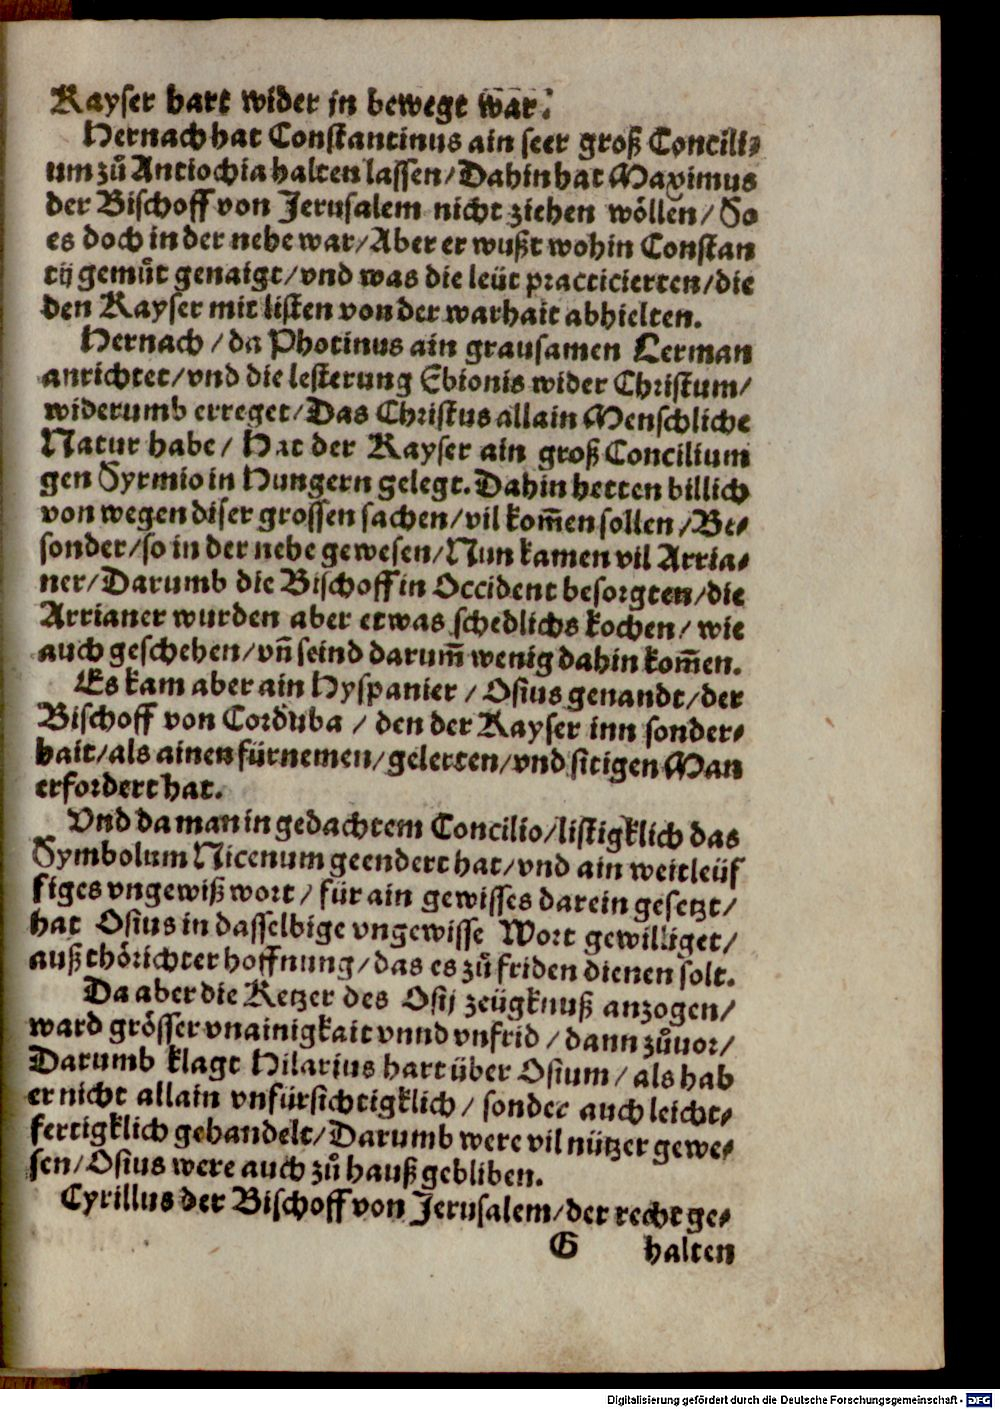 Kayser hart wider jn bewegt war.
Hernach hat Constantinus ain seer groß Concili⸗
um zů Antiochia halten lassen/ Dahin hat Maximus
der Bischoff von Jerusalem nicht ziehen wöllen/ So
es doch in der nehe war/ Aber er wußt wohin Constan
tij gemůt genaigt/ vnd was die leüt practicierten/ die
den Kayser mit listen von der warhait abhielten.
Hernach/ da Photinus ain grausamen Lerman
anrichtet/ vnd die lesterung Ebionis wider Christum/
widerumb erreget/ Das Christus allain Menschliche
Natur habe/ Hat der Kayser ain groß Concilium
gen Syrmio in Hungern gelegt. Dahin hetten billich
von wegen diser grossen sachen/ vil kom̄en sollen/ Be⸗
sonder/ so in der nehe gewesen/ Nun kamen vil Arria⸗
ner/ Darumb die Bischoff in Occident besorgten/ die
Arrianer wurden aber etwas schedlichs kochen/ wie
auch geschehen/ vn̄ seind darum̄ wenig dahin kom̄en.
Es kam aber ain Hyspanier/ Osius genandt/ der
Bischoff von Corduba/ den der Kayser inn sonder⸗
hait/ als ainen fürnemen/ gelerten/ vnd sitigen Man
erfordert hat.
Vnd da man in gedachtem Concilio/ listigklich das
Symbolum Nicenum geendert hat/ vnd ain weitleüf
figes vngewiß wort/ für ain gewisses darein gesetzt/
hat Osius in dasselbige vngewisse Wort gewilliget/
auß thörichter hoffnung/ das es zů friden dienen solt.
Da aber die Ketzer des Osij zeügknuß anzogen/
ward grösser vnainigkait vnnd vnfrid/ dann zůuor/
Darumb klagt Hilarius hart über Osium/ als hab
er nicht allain vnfürsichtigklich/ sonder auch leicht⸗
fertigklich gehandelt/ Darumb were vil nützer gewe⸗
sen/ Osius were auch zů hauß gebliben.
Cyrillus der Bischoff von Jerusalem/ der recht ge⸗
G halten
Digitalisierung gefördert durch die Deutsche Forschungsgemeinschaft - DFG